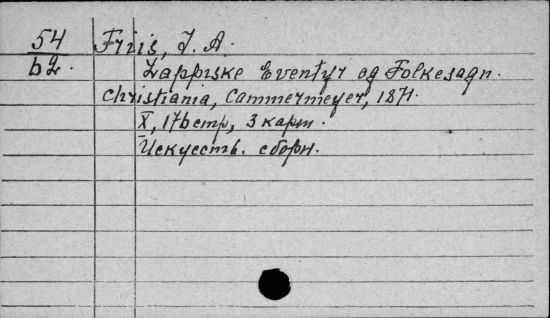 54
62
Friis, J. A.
Lappiske Eventyr og Folkesagn.
Christiania, Cammermeyer, 1871.
X, 176 стр, 3 карт.
Искусств. сборн.